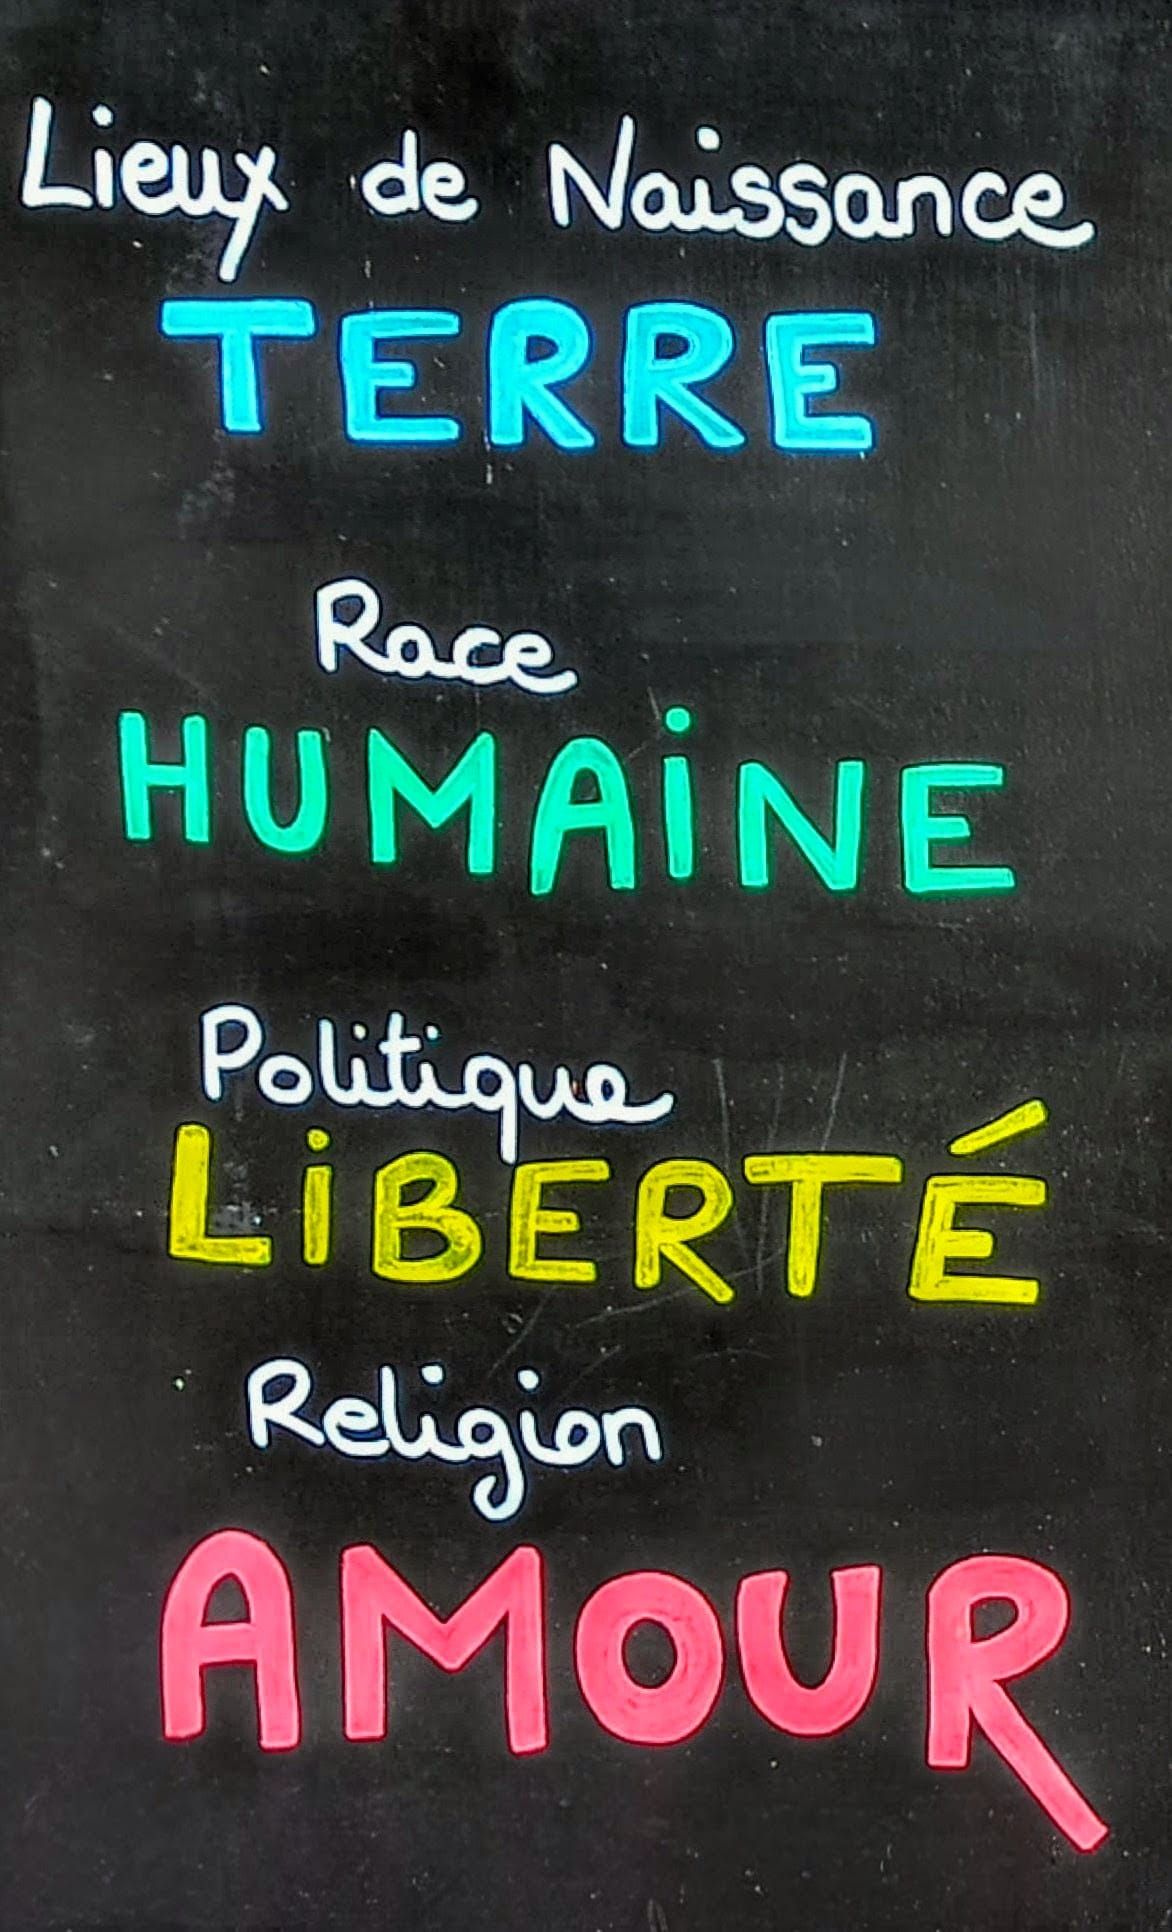 Lieux de Naissance
TERRE
Race
HUMAiNE
Politique
LiBERTÉ
Religion
AMOUR